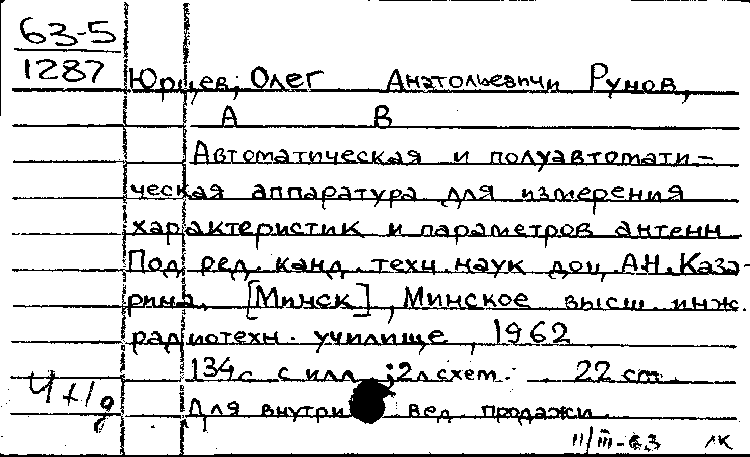 63-5
1287
Юрцев, Олег Анатольевичи Румов,
А В
Автоматическая и полуавтомати-
ческая аппаратура для измерения
характеристик и параметров антенн
Под ред. канд. техн. наук доц, А.Н. Каза-
рина. [Минск], Минское высш. инж.
радиотехн. училище, 1962
134с с илл ; 2л схем. 22 cm
Для внутри вед продажи
11/III-63 ЛК